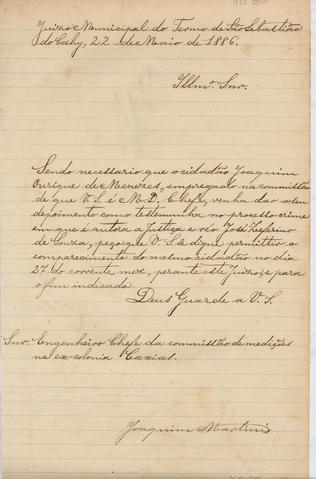 Juizo Municipal do Termo de São Sebastião
do Cahy, 22 de Maio de 1886.
Illmo. Snr.
Sendo necessario que o cidadão Joaquim
Ourique de Menezes, empregado na commissão
de que V. S. é M. D. Chefe, venha dar o seu
depoimento como testemunha no processo crime
em que é autora a Justiça e réo José Zeferino
de Souza, peço que V. S. se digne permittir o
comparecimento do mesmo cidadão no dia
27 do corrente mez, perante este Juizo, e para
o fim indicado.
Deus Guarde a V. S.
Snr. Engenheiro Chefe da commissão de medições
na ex-colonia Caxias.
Joaquim Martins